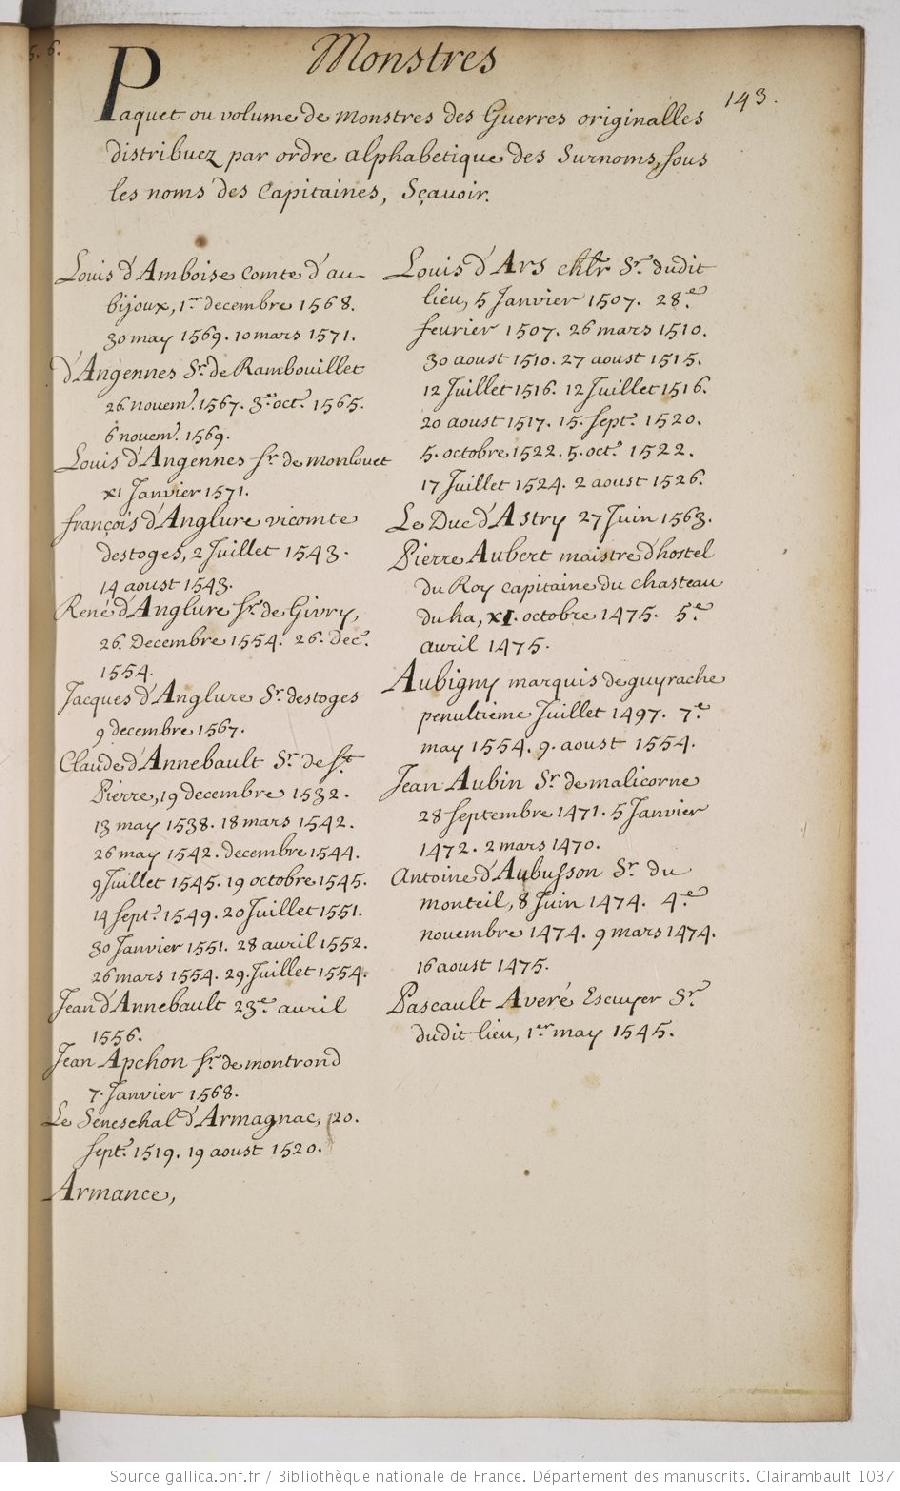 5. 6.
Monstres
143.
Paquet ou volume de monstres des Guerres originalles
distribuez par ordre alphabetique des Surnoms, sous
les noms des Capitaines, Sçavoir.
Louis d'Amboise Comte d'au-
bijoux, 1er decembre 1568.
30 may 1569. 10 mars 1571.
d'Angennes Sr. de Rambouillet
26 novemr. 1567. 3e oct. 1565.
6 novemr. 1569.
Louis d'Angennes sr. de monlouet
xi Janvier 1571.
françois d'Anglure vicomte
destoges, 2 Juillet 1543.
14 aoust 1543.
René d'Anglure sr. de Givry,
26 Decembre 1554. 26. Dec.
1554.
Jacques d'Anglure Sr. destoges
9 decembre 1567.
Claude d'Annebault Sr. de St.
Pierre, 19 decembre 1532.
13 may 1538. 18 mars 1542.
26 may 1542. decembre 1544.
9 Juillet 1545. 19 octobre 1545.
14 Sept. 1549. 20 Juillet 1551.
30 Janvier 1551. 28 avril 1552.
26 mars 1554. 29. Juillet 1554.
Jean d'Annebault 23e avril
1556.
Jean Apchon sr. de montrond
7. Janvier 1568.
Le Seneschal d'Armagnac, 20.
sept. 1519. 19 aoust 1520.
Armance,
Louis d'Ars chlr Sr. dudit
lieu, 5 Janvier 1507. 28e
fevrier 1507. 26 mars 1510.
30 aoust 1510. 27 aoust 1515.
12 Juillet 1516. 12 Juillet 1516.
20 aoust 1517. 15. sept. 1520.
5. octobre 1522. 5. oct. 1522.
17 Juillet 1524. 2 aoust 1526.
Le Duc d'Astry 27 Juin 1563.
Pierre Aubert maistre d'hostel
du Roy capitaine du chasteau
du ha, xi. octobre 1475. 5e
avril 1475.
Aubigny marquis de guyrache
penultieme Juillet 1497. 7e
may 1554. 9. aoust 1554.
Jean Aubin Sr. de malicorne
28 septembre 1471. 5 Janvier
1472. 2 mars 1470.
Antoine d'Aubusson Sr. du
monteil, 8 Juin 1474. 4e
novembre 1474. 9 mars 1474.
16 aoust 1475.
Pascault Averé Escuyer Sr.
dudit lieu, 1er may 1545.
Source gallica.bnf.fr / Bibliothèque nationale de France. Département des manuscrits. Clairambault 1037